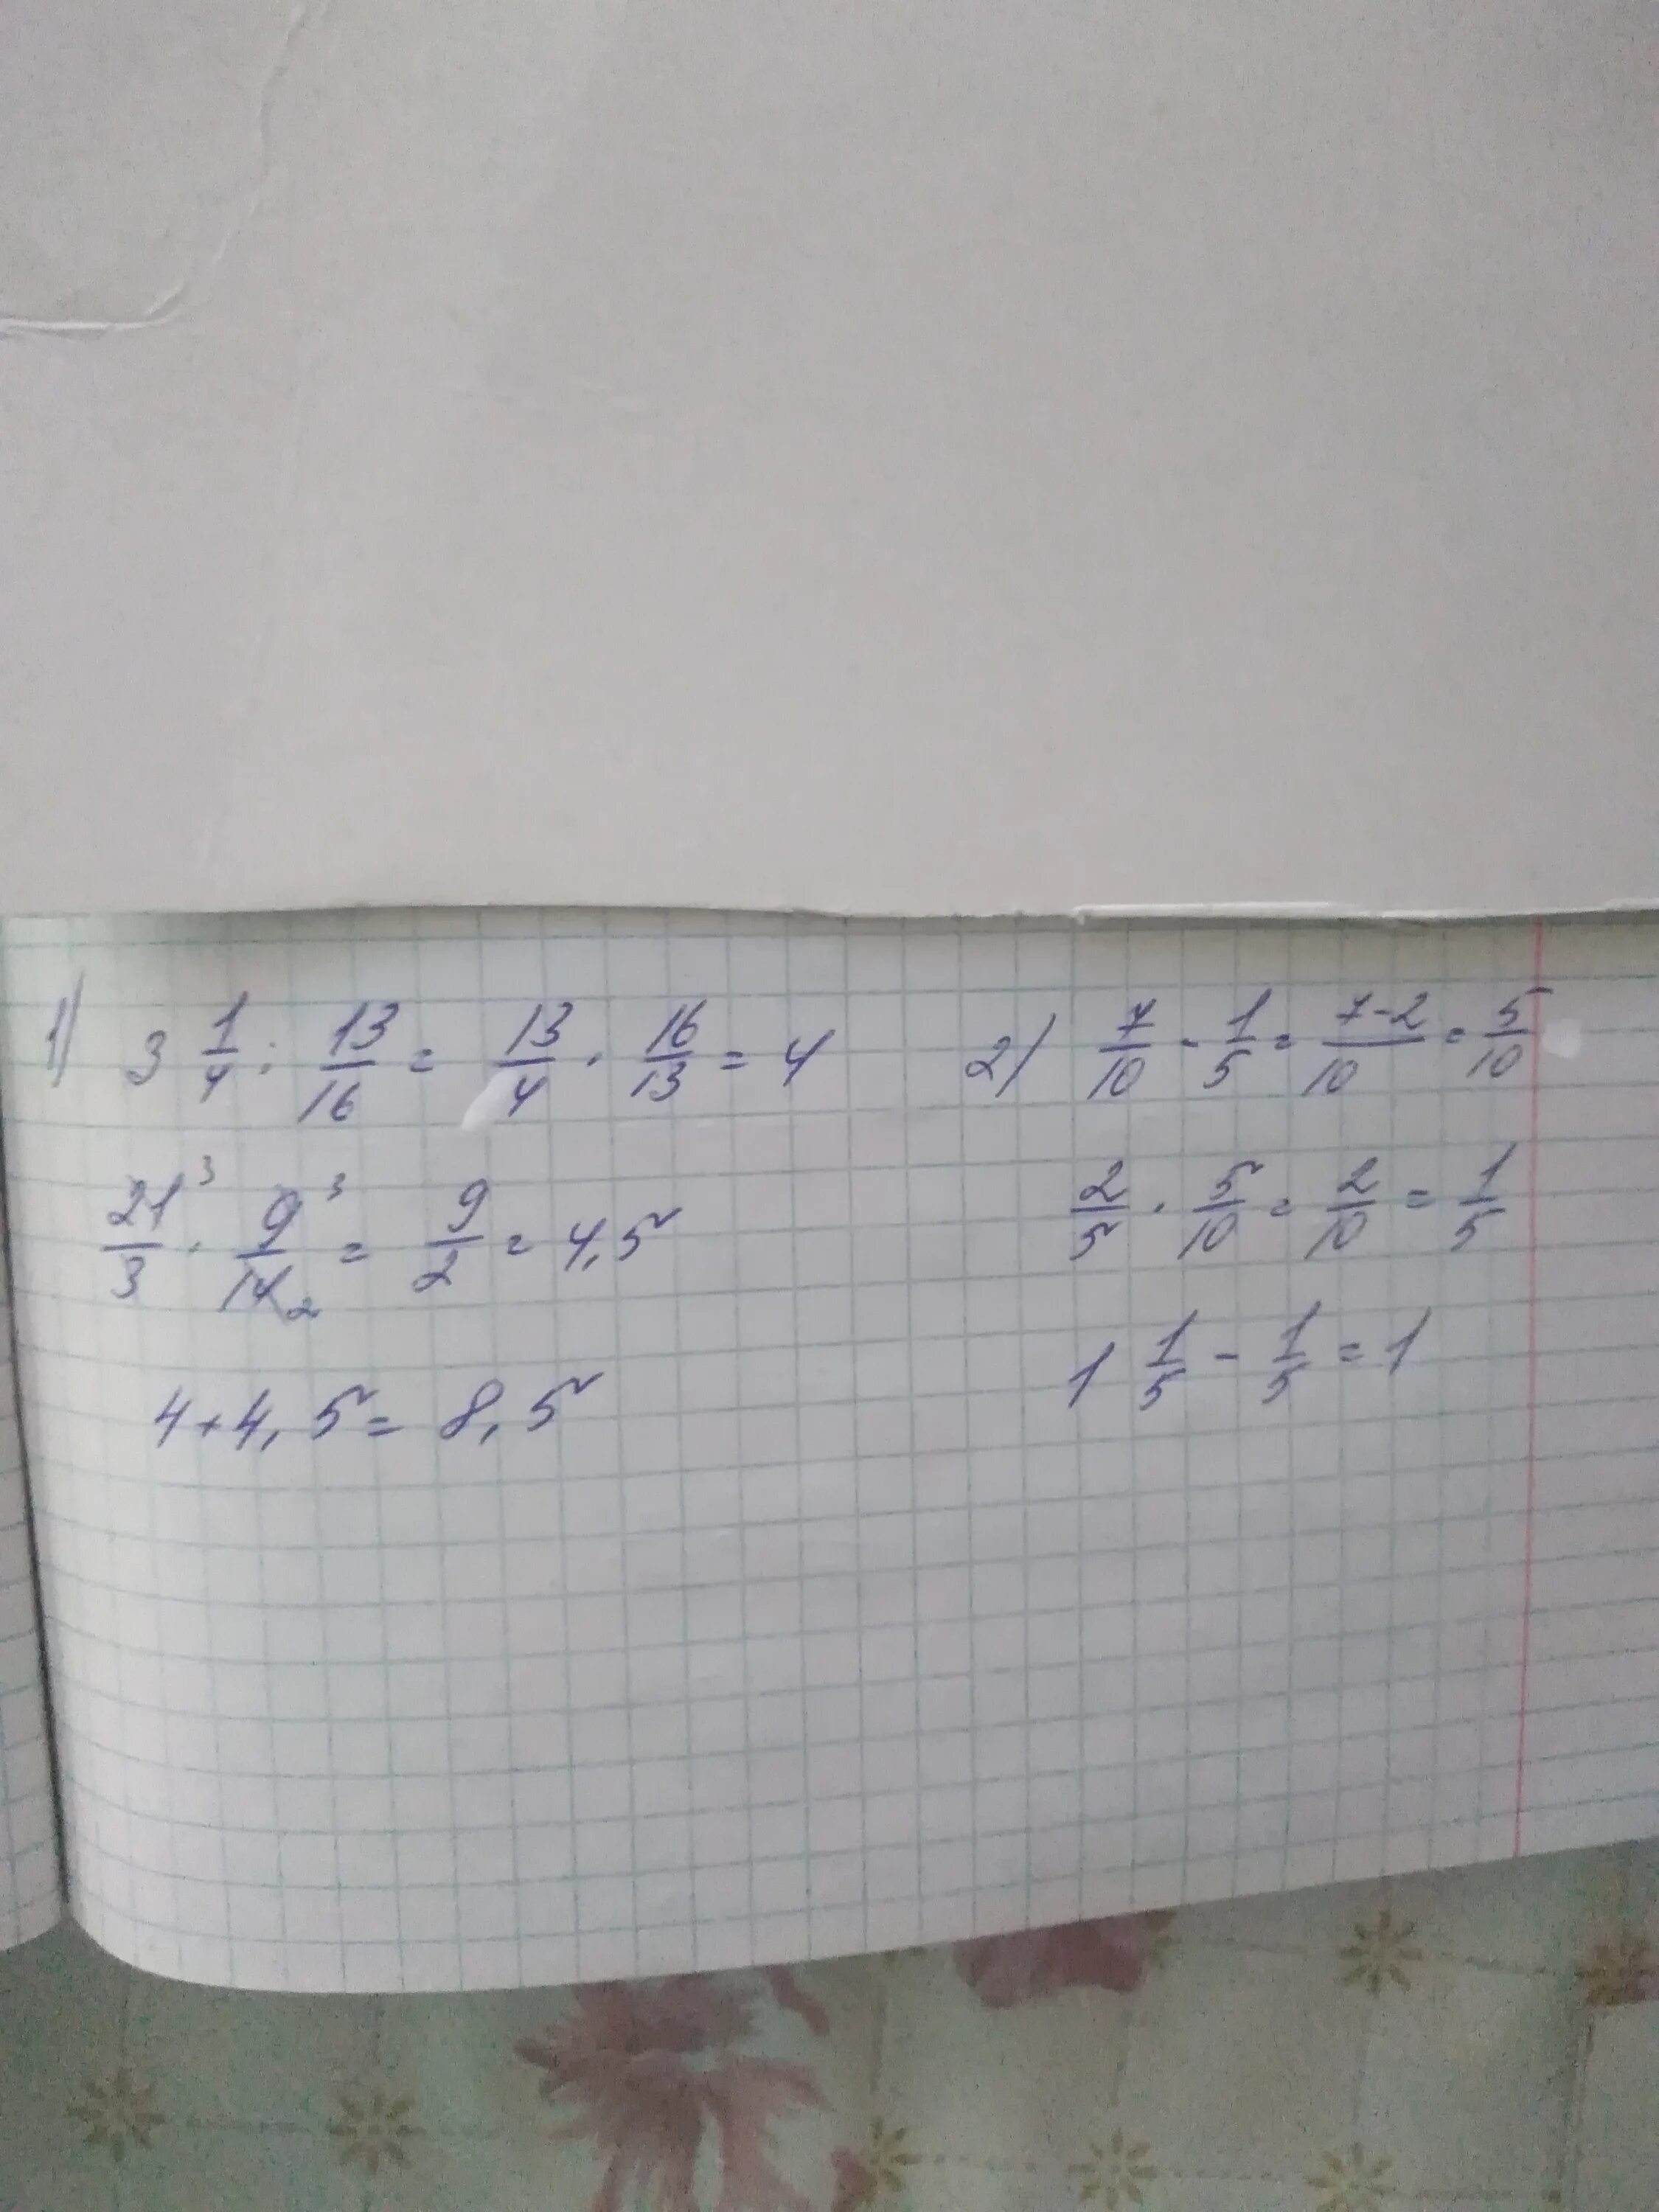 1) 3 1/4 : 13/16 = 13/4 · 16/13 = 4
21³/3 · 9³/14₂ = 9/2 = 4,5
4+4,5 = 8,5
2) 7/10 - 1/5 = 7-2/10 = 5/10
2/5 · 5/10 = 2/10 = 1/5
1 1/5 - 1/5 = 1